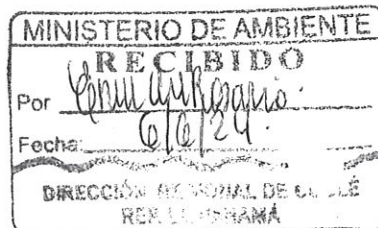 MINISTERIO DE AMBIENTE
RECIBIDO
Por
Fecha: 6/6/24.
DIRECCIÓN REGIONAL DE COCLÉ